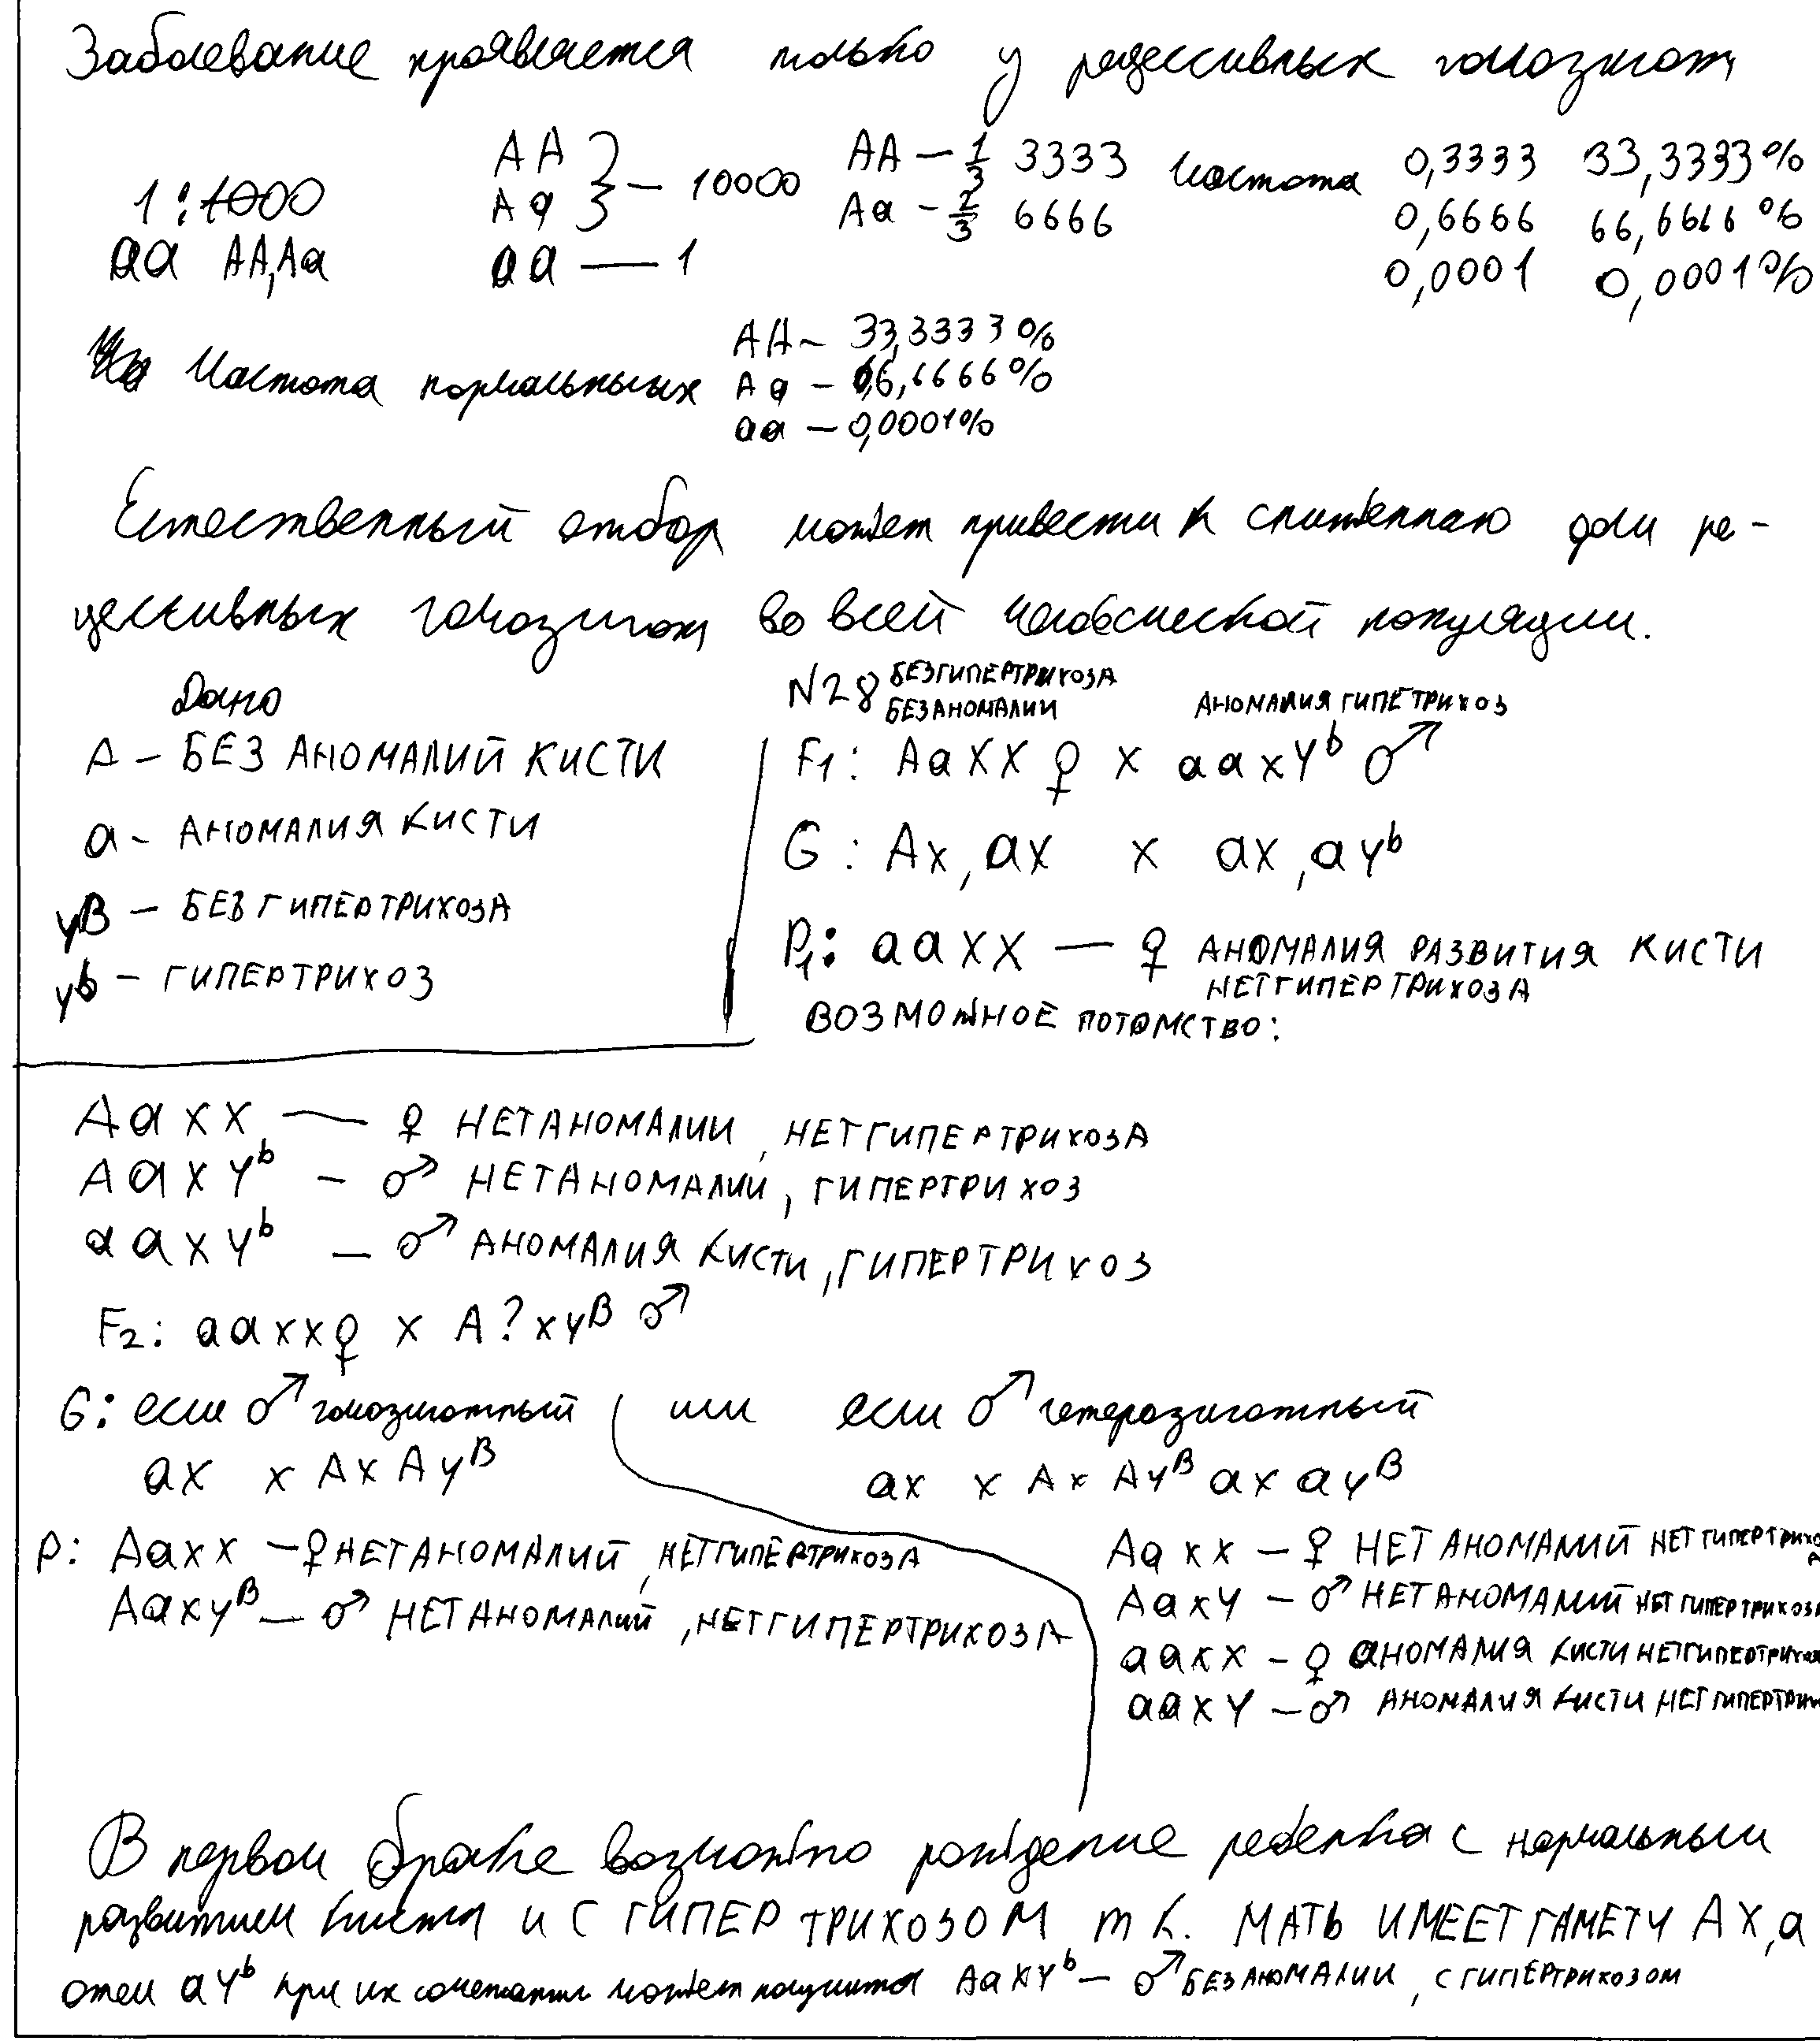 Заболевание проявляется только у рецессивных гомозигот,
1:1000 AA Aa } — 10000 AA — 1/3 3333 частота 0,3333 33,3333%
Aa — 2/3 6666 0,6666 66,6666%
aa AA, Aa aa — 1 0,0001 0,0001%
Частота нормальных AA — 33,3333%
Aa — 66,6666%
aa — 0,0001%
Естественный отбор может привести к снижению доли ре-
цессивных гомозигот во всей человеческой популяции.
Дано
A — БЕЗ АНОМАЛИЙ КИСТИ
a — АНОМАЛИЯ КИСТИ
yB — БЕЗ ГИПЕРТРИХОЗА
yb — ГИПЕРТРИХОЗ
N28 БЕЗ ГИПЕРТРИХОЗА БЕЗ АНОМАЛИИ АНОМАЛИЯ ГИПЕТРИХОЗ
F1: AaXX ♀ x aaxY^b ♂
G: Ax, ax x ax, aY^b
P1: aaXX — ♀ АНОМАЛИЯ РАЗВИТИЯ КИСТИ
НЕТ ГИПЕРТРИХОЗА
ВОЗМОЖНОЕ ПОТОМСТВО:
AaXX — ♀ НЕТ АНОМАЛИИ, НЕТ ГИПЕРТРИХОЗА
AaXY^b — ♂ НЕТ АНОМАЛИИ, ГИПЕРТРИХОЗ
aaXY^b — ♂ АНОМАЛИЯ КИСТИ, ГИПЕРТРИХОЗ
F2: aaxx♀ x A?xy^B ♂
G: если ♂ гомозиготный или если ♂ гетерозиготный
ax x Ax Ay^B
ax x Ax Ay^B ax ay^B
P: AaXX — ♀ НЕТ АНОМАЛИЙ, НЕТ ГИПЕРТРИХОЗА
AaXy^B — ♂ НЕТ АНОМАЛИЙ, НЕТ ГИПЕРТРИХОЗА
AaXX — ♀ НЕТ АНОМАЛИЙ НЕТ ГИПЕРТРИХОЗА
AaXY — ♂ НЕТ АНОМАЛИЙ НЕТ ГИПЕРТРИХОЗА
aaXX — ♀ АНОМАЛИЯ КИСТИ НЕТ ГИПЕРТРИХОЗ
aaXY — ♂ АНОМАЛИЯ КИСТИ НЕТ ГИПЕРТРИХ
В первом браке возможно рождение ребенка с нормальным
развитием кисти и С ГИПЕРТРИХОЗОМ т к. МАТЬ ИМЕЕТ ГАМЕТУ AX, а
отец aY^b при их сочетании может получится AaXY^b — ♂ БЕЗ АНОМАЛИИ, С ГИПЕРТРИХОЗОМ